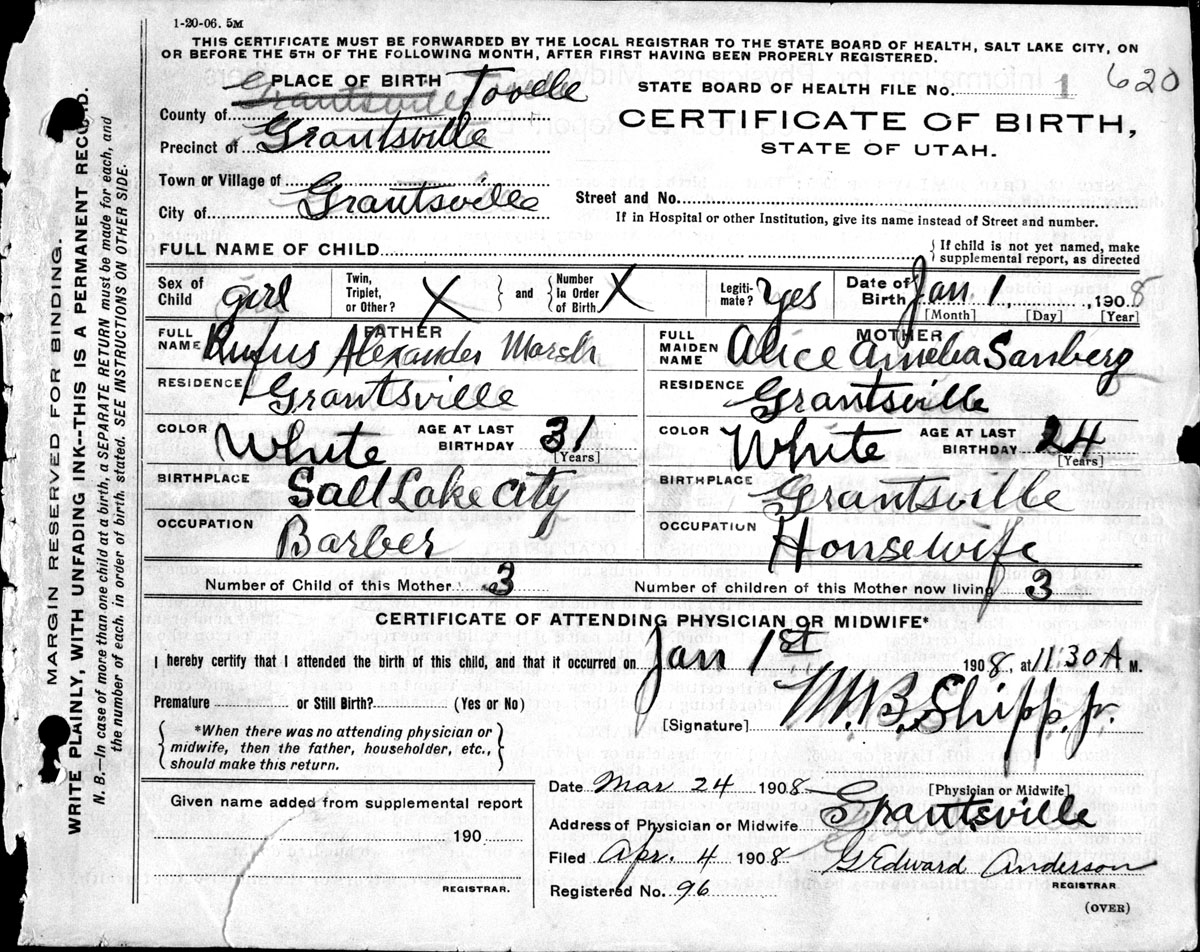 1-20-06. 5M
THIS CERTIFICATE MUST BE FORWARDED BY THE LOCAL REGISTRAR TO THE STATE BOARD OF HEALTH, SALT LAKE CITY, ON
OR BEFORE THE 5TH OF THE FOLLOWING MONTH, AFTER FIRST HAVING BEEN PROPERLY REGISTERED.
PLACE OF BIRTH
STATE BOARD OF HEALTH FILE NO. 1 620
County of Grantsville Tooele
CERTIFICATE OF BIRTH,
STATE OF UTAH.
Precinct of Grantsville
Town or Village of
Street and No.
City of Grantsville
If in Hospital or other Institution, give its name instead of Street and number.
FULL NAME OF CHILD
{ If child is not yet named, make
supplemental report, as directed
Sex of Child girl
Twin, Triplet, or Other? X } and { Number In Order of Birth X
Legiti- mate? Yes
Date of Birth Jan. 1, 1908
[Month] [Day] [Year]
FATHER
FULL NAME Rufus Alexander Marsh
MOTHER
FULL MAIDEN NAME Alice Amelia Sanberg
RESIDENCE Grantsville
RESIDENCE Grantsville
COLOR White AGE AT LAST BIRTHDAY 31 [Years]
COLOR White AGE AT LAST BIRTHDAY 24 [Years]
BIRTHPLACE Salt Lake City
BIRTHPLACE Grantsville
OCCUPATION Barber
OCCUPATION Housewife
Number of Child of this Mother 3
Number of children of this Mother now living 3
CERTIFICATE OF ATTENDING PHYSICIAN OR MIDWIFE*
I hereby certify that I attended the birth of this child, and that it occurred on Jan 1st 1908, at 11:30 A M.
Premature or Still Birth? (Yes or No)
[Signature] M. B. Shipp. Jr.
{ *When there was no attending physician or
midwife, then the father, householder, etc.,
should make this return. }
[Physician or Midwife]
Given name added from supplemental report
190
REGISTRAR.
Date Mar 24 1908
Address of Physician or Midwife Grantsville
Filed Apr. 4 1908 G Edward Anderson
REGISTRAR.
Registered No. 96
(OVER)
MARGIN RESERVED FOR BINDING.
WRITE PLAINLY, WITH UNFADING INK--THIS IS A PERMANENT RECORD.
N. B.—In case of more than one child at a birth, a SEPARATE RETURN must be made for each, and
the number of each, in order of birth, stated. SEE INSTRUCTIONS ON OTHER SIDE.